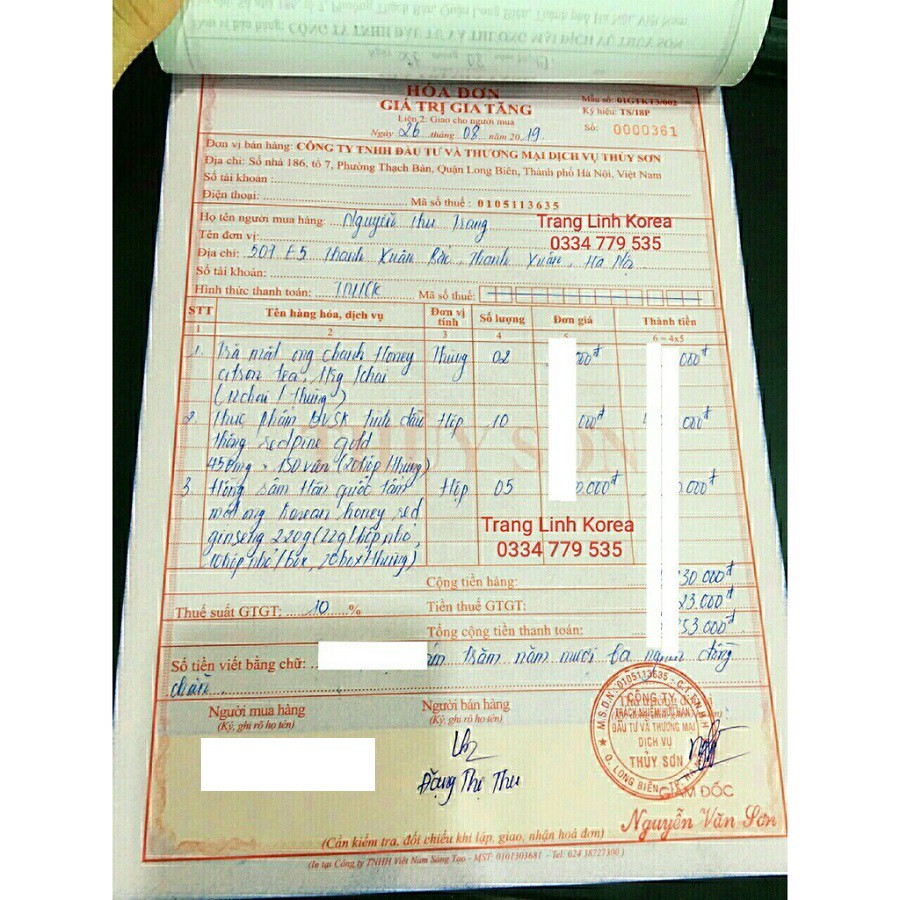 HÓA ĐƠN
GIÁ TRỊ GIA TĂNG
Liên 2: Giao cho người mua
Ngày 26 tháng 08 năm 2019.
Mẫu số: 01GTKT3/002
Ký hiệu: TS/18P
Số: 0000361
Đơn vị bán hàng: CÔNG TY TNHH ĐẦU TƯ VÀ THƯƠNG MẠI DỊCH VỤ THỦY SƠN
Địa chỉ: Số nhà 186, tổ 7, Phường Thạch Bàn, Quận Long Biên, Thành phố Hà Nội, Việt Nam
Số tài khoản:
Điện thoại: Mã số thuế: 0105113635
Họ tên người mua hàng: Nguyễn Thu Trang
Trang Linh Korea
0334 779 535
Tên đơn vị:
Địa chỉ: 509 E5 Thanh Xuân Bắc, Thanh Xuân, Hà Nội
Số tài khoản:
Hình thức thanh toán: TM/CK Mã số thuế:
STT Tên hàng hóa, dịch vụ Đơn vị tính Số lượng Đơn giá Thành tiền
1 2 3 4 5 6 = 4x5
1. Trà mật ong chanh Honey Thùng 02 000đ 000đ
citron tea, 1kg/chai
(12chai/thùng)
2. Thực phẩm BVSK tinh dầu Hộp 10 000đ 000đ
thông redpine gold
450mg x 150 viên (20hộp/thùng)
3. Hồng sâm Hàn quốc tẩm Hộp 05 0.000đ 0.000đ
mật ong Korean honey red
ginseng 220g (22g/hộp nhỏ,
10hộp nhỏ/box, 20box/thùng)
Trang Linh Korea
0334 779 535
THỦY SƠN
Cộng tiền hàng: 30.000đ
Thuế suất GTGT: 10 % Tiền thuế GTGT: 23.000đ
Tổng cộng tiền thanh toán: 353.000đ
Số tiền viết bằng chữ: trăm năm mươi ba nghìn đồng
chẵn.
Người mua hàng
(Ký, ghi rõ họ tên)
Người bán hàng
(Ký, ghi rõ họ tên)
Đặng Thị Thu
M.S.D.N: 0105113635
CÔNG TY
TRÁCH NHIỆM HỮU HẠN
ĐẦU TƯ VÀ THƯƠNG MẠI
DỊCH VỤ
THỦY SƠN
Q. LONG BIÊN
GIÁM ĐỐC
Nguyễn Văn Sơn
(Cần kiểm tra, đối chiếu khi lập, giao, nhận hoá đơn)
(In tại Công ty TNHH Việt Nam Sáng Tạo - MST: 0101303681 - Tel: 024 38727300)